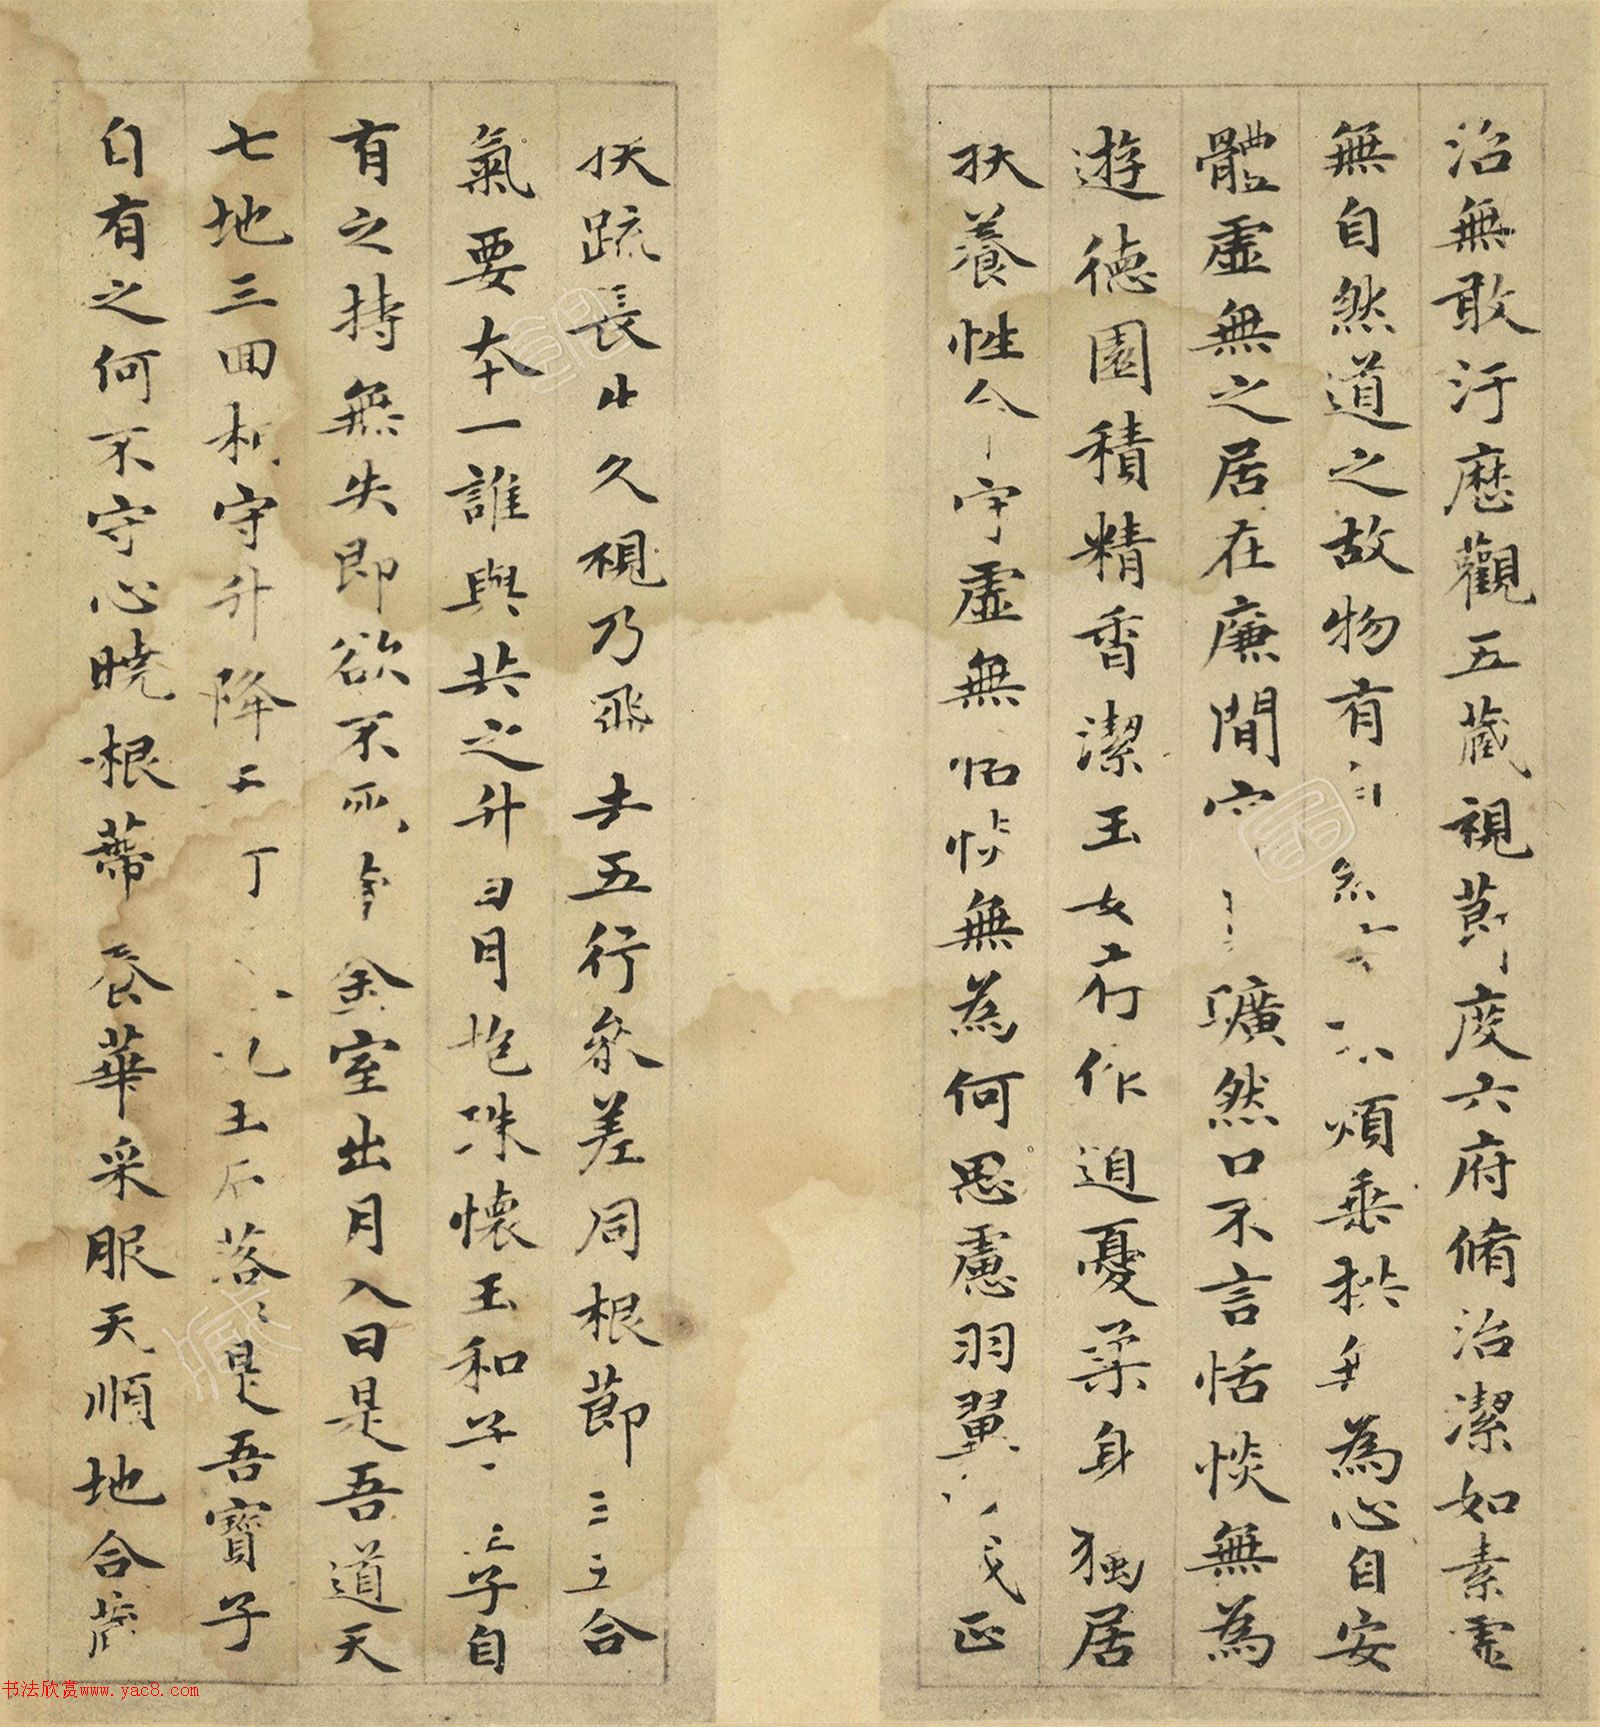 治無敢汙歷觀五藏視莭度六府脩治潔如素虛
無自然道之故物有自 煩垂拱無為心自安
體虛無之居在廉間 曠然口不言恬惔無為
遊德園積精香潔玉女存作道憂柔身獨居
扶養性 守虛無恬惔無為何思慮羽翼 正
扶疏長生久視乃飛去五行參差同根莭三五合
氣要本一誰與共之升日月抱珠懷玉和子 子自
有之持無失即欲不死 金室出月入日是吾道天
七地三回相守升降 玉石落是吾寶子
自有之何不守心曉根蔕養華采服天順地合藏
书法欣赏www.yac8.com